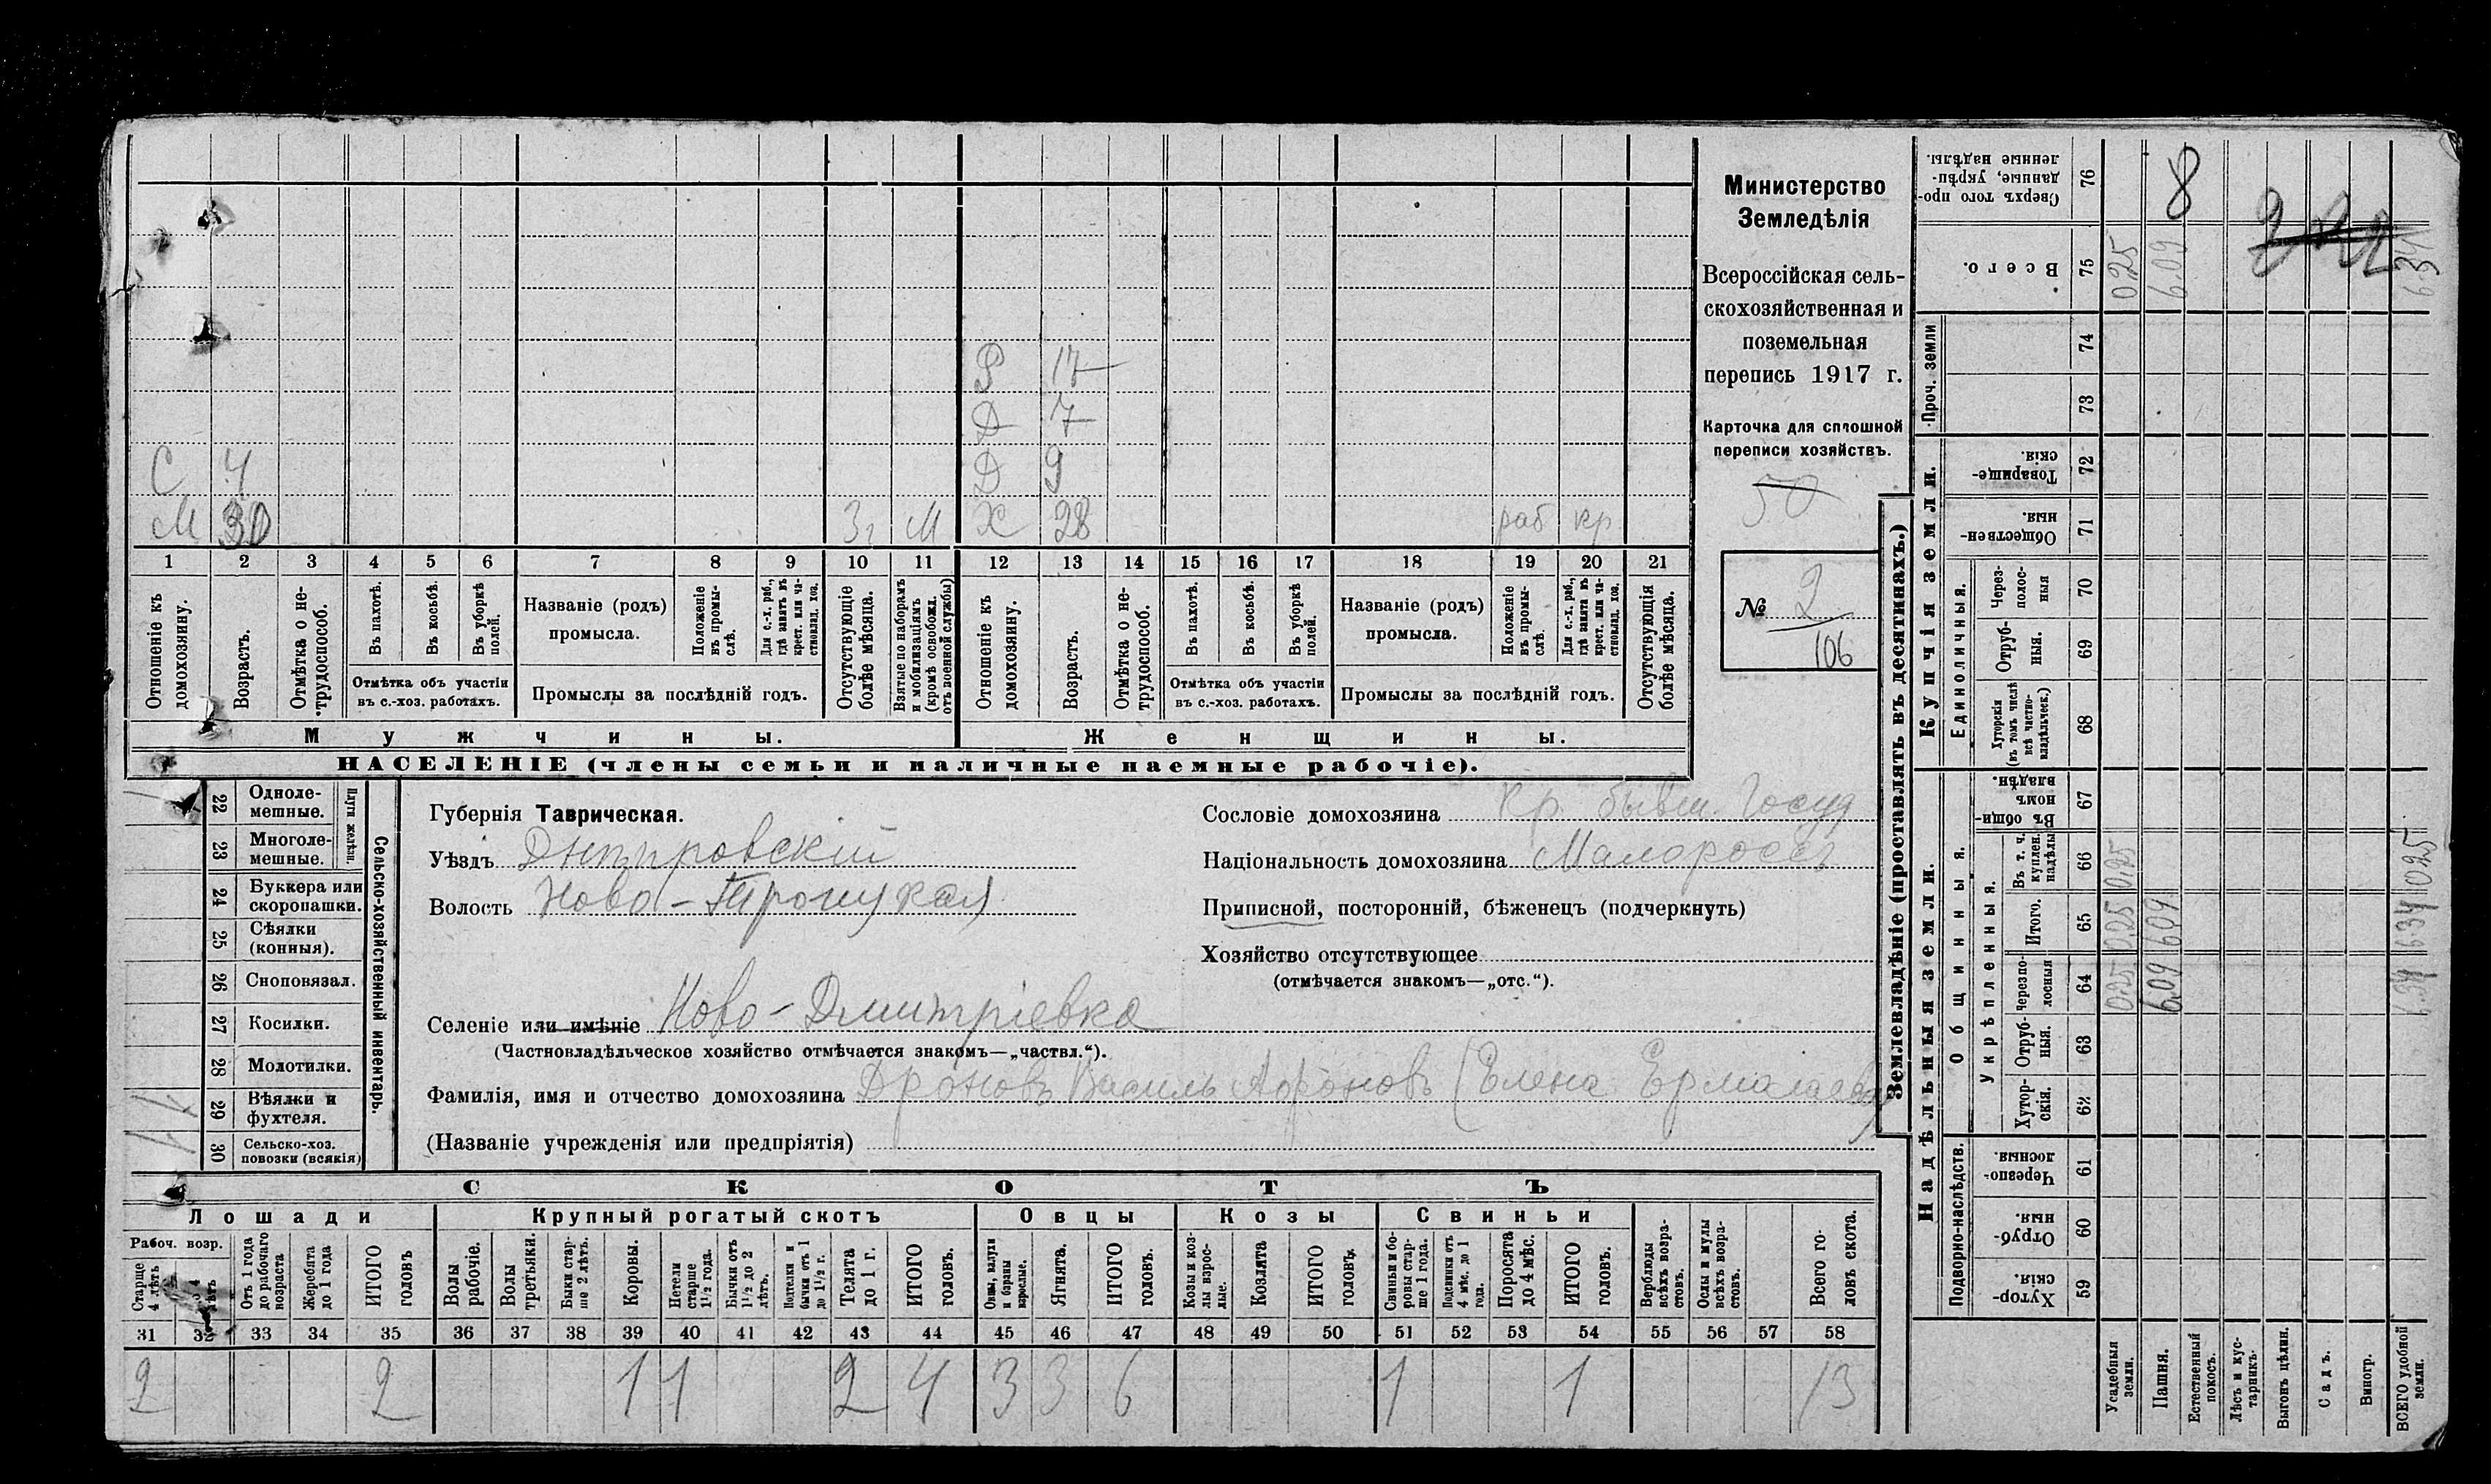 Р 17
Д 7
С 4 Д 9
М 30 3г М Ж 28 раб кр
1 2 3 4 5 6 7 8 9 10 11 12 13 14 15 16 17 18 19 20 21
Отношеніе къ домохозяину.
Возрастъ.
Отмѣтка о не-
трудоспособ.
Въ пахотѣ.
Въ косьбѣ.
Въ уборкѣ полей.
Отмѣтка объ участіи
въ с.-хоз. работахъ.
Названіе (родъ)
промысла.
Положеніе въ промы-
слѣ.
Для с.-х. раб.,
гдѣ занятъ въ
крест. или ча-
стновлад. хоз.
Промыслы за послѣдній годъ.
Отсутствующіе
болѣе мѣсяца.
Взятые по наборамъ
и мобилизаціямъ
(кромѣ освобожд.
отъ военной службы)
Отношеніе къ домохозяину.
Возрастъ.
Отмѣтка о не-
трудоспособ.
Въ пахотѣ.
Въ косьбѣ.
Въ уборкѣ полей.
Отмѣтка объ участіи
въ с.-хоз. работахъ.
Названіе (родъ)
промысла.
Положеніе въ промы-
слѣ.
Для с.-х. раб.,
гдѣ занята въ
крест. или ча-
стновлад. хоз.
Промыслы за послѣдній годъ.
Отсутствующія
болѣе мѣсяца.
Мужчины. Женщины.
НАСЕЛЕНІЕ (члены семьи и наличные наемные рабочіе).
Министерство
Земледѣлія
Всероссійская сель-
скохозяйственная и
поземельная
перепись 1917 г.
Карточка для сплошной
переписи хозяйствъ.
50
№ 2
106
22 Одноле-
мешные.
23 Многоле-
мешные.
Плуги желѣзн.
24 Буккера или
скоропашки.
25 Сѣялки
(конныя).
26 Сноповязал.
27 Косилки.
28 Молотилки.
29 Вѣялки и
фухтеля.
30 Сельско-хоз.
повозки (всякія)
Сельско-хозяйственный инвентарь.
Губернія Таврическая.
Уѣздъ Днѣпровскій
Волость Ново-Троицкая
Селеніе или имѣніе Ново-Дмитріевка
(Частновладѣльческое хозяйство отмѣчается знакомъ—„частвл.“).
Фамилія, имя и отчество домохозяина Дроновъ Василь Аѳроновъ (Елена Ермолаева)
(Названіе учрежденія или предпріятія)
Сословіе домохозяина Кр. бывш. Госуд
Національность домохозяина Малороссъ
Приписной, посторонній, бѣженецъ (подчеркнуть)
Хозяйство отсутствующее
(отмѣчается знакомъ—„отс.“).
СКОТЪ
Лошади Крупный рогатый скотъ Овцы Козы Свиньи
Рабоч. возр.
Старше 4 лѣтъ
Отъ 1 года
до рабочаго
возраста
Жеребята
до 1 года
ИТОГО головъ
Волы рабочіе.
Волы третьяки.
Быки стар-
ше 2 лѣтъ.
Коровы.
Нетели
старше
1½ года.
Бычки отъ
1½ до 2
лѣтъ.
Подтелки и
бычки отъ 1
до 1½ г.
Телята
до 1 г.
ИТОГО головъ.
Овцы, валухи
и бараны
взрослые.
Ягнята.
ИТОГО головъ.
Козы и коз-
лы взрос-
лые.
Козлята
ИТОГО головъ.
Свиньи и бо-
ровы стар-
ше 1 года.
Подсвинки отъ
4 мѣс. до 1
года.
Поросята
до 4 мѣс.
ИТОГО головъ.
Верблюды
всѣхъ возра-
стовъ.
Ослы и мулы
всѣхъ возра-
стовъ.
Всего го-
ловъ скота.
31 32 33 34 35 36 37 38 39 40 41 42 43 44 45 46 47 48 49 50 51 52 53 54 55 56 57 58
2 2 1 1 2 4 3 3 6 1 1 13
Землевладѣніе (проставлять въ десятинахъ.)
Надѣльныя земли. Купчія земли. Проч. земли
Подворно-наслѣдств. Общинныя. Укрѣпленныя. Единоличныя.
Хутор-
скія. 59
Отруб-
ныя. 60
Черезпо-
лосныя. 61
Хутор-
скія. 62
Отруб-
ныя. 63
Черезпо-
лосныя 64
Итого. 65
Въ т. ч.
куплен.
надѣлы 66
Въ общин-
номъ
владѣн. 67
Хуторскія
(въ томъ числѣ
всѣ частно-
владѣльческ.) 68
Отруб-
ныя. 69
Через-
полос-
ныя 70
Обществен-
ныя. 71
Товарище-
скія. 72
73
74
Всего. 75
Сверхъ того про-
данные, укрѣп-
ленные надѣлы. 76
Усадебныя земли. 0.25 0.25 0.25 0.25
Пашня. 6.09 6.09 6.09 8
Естественный покосъ.
Лѣсъ и кус-
тарникъ.
Выгонъ цѣлин.
Садъ.
Виногр.
ВСЕГО удобной земли. 6.34 6.34 0.25 6.34